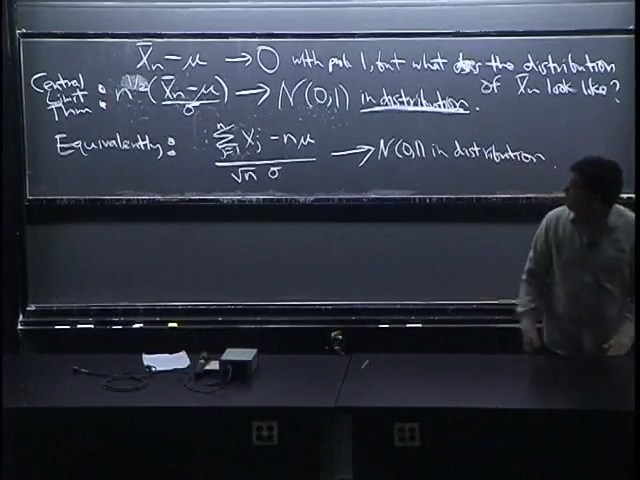 X̄ₙ - μ → 0 with prob 1, but what does the distribution of X̄ₙ look like?
Central Limit Thm: n^{1/2} (X̄ₙ - μ)/σ → N(0,1) in distribution.
Equivalently: (∑_{j=1}^{n} Xⱼ - nμ)/(√n σ) → N(0,1) in distribution.